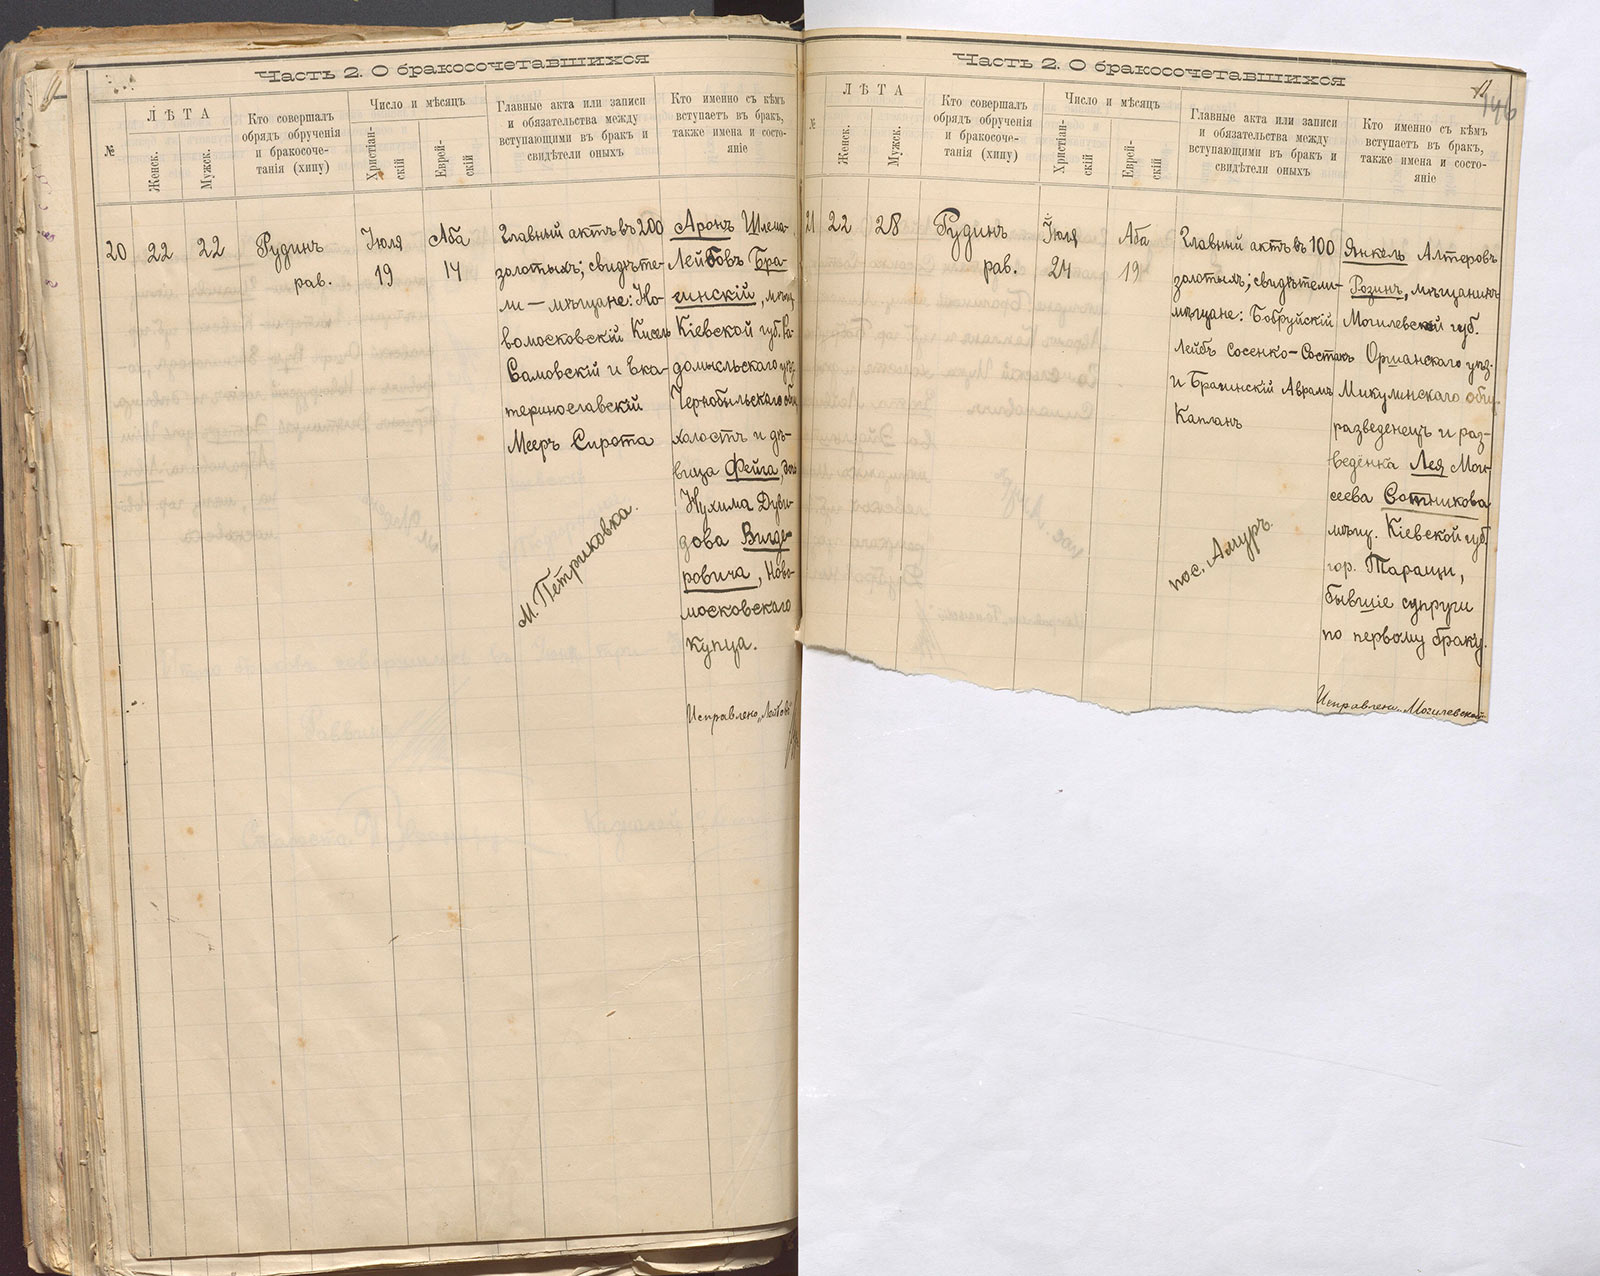 Часть 2. О бракосочетавшихся
№
ЛѢТА
Женск.
Мужск.
Кто совершалъ
обрядъ обрученія
и бракосоче-
танія (хипу)
Число и мѣсяцъ
Христіан-
скій
Еврей-
скій
Главные акта или записи
и обязательства между
вступающими въ бракъ и
свидѣтели оныхъ
Кто именно съ кѣмъ
вступаетъ въ бракъ,
также имена и состо-
яніе
20
22
22
Рудинъ
рав.
Іюля
19
Аба
14
Главный актъ въ 200
золотыхъ; свидѣте-
ли — мѣщане: Но-
вомосковскій Кисель
Самовскій и Ека-
теринославскій
Мееръ Сирота
М. Петриковка.
Аронъ Шлема-
Лейбовъ Бра-
гинскій, мѣщ.
Кіевской губ. Ра-
домысльскаго уѣз.
Чернобыльскаго общ.
холостъ и дѣ-
вица Фейга, дочь
Нухима Дуви-
дова Вигде-
ровича, Ново-
московскаго
купца.
Исправлено „Лейбовъ“
Часть 2. О бракосочетавшихся
146
№
ЛѢТА
Женск.
Мужск.
Кто совершалъ
обрядъ обрученія
и бракосоче-
танія (хипу)
Число и мѣсяцъ
Христіан-
скій
Еврей-
скій
Главные акта или записи
и обязательства между
вступающими въ бракъ и
свидѣтели оныхъ
Кто именно съ кѣмъ
вступаетъ въ бракъ,
также имена и состо-
яніе
21
22
28
Рудинъ
рав.
Іюля
24
Аба
19
Главный актъ въ 100
золотыхъ; свидѣтели-
мѣщане: Бобруйскій
Лейбъ Сосенко-Состакъ
и Брагинскій Аврамъ
Капланъ
пос. Амуръ.
Янкель Алтеровъ
Розинъ, мѣщанинъ
Могилевской губ.
Оршанскаго уѣз.
Микулинскаго общ.
разведенецъ и раз-
ведёнка Лея Мои-
сеева Сотникова
мѣщ. Кіевской губ.
гор. Таращи,
бывшіе супруги
по первому браку.
Исправлено „Могилевской